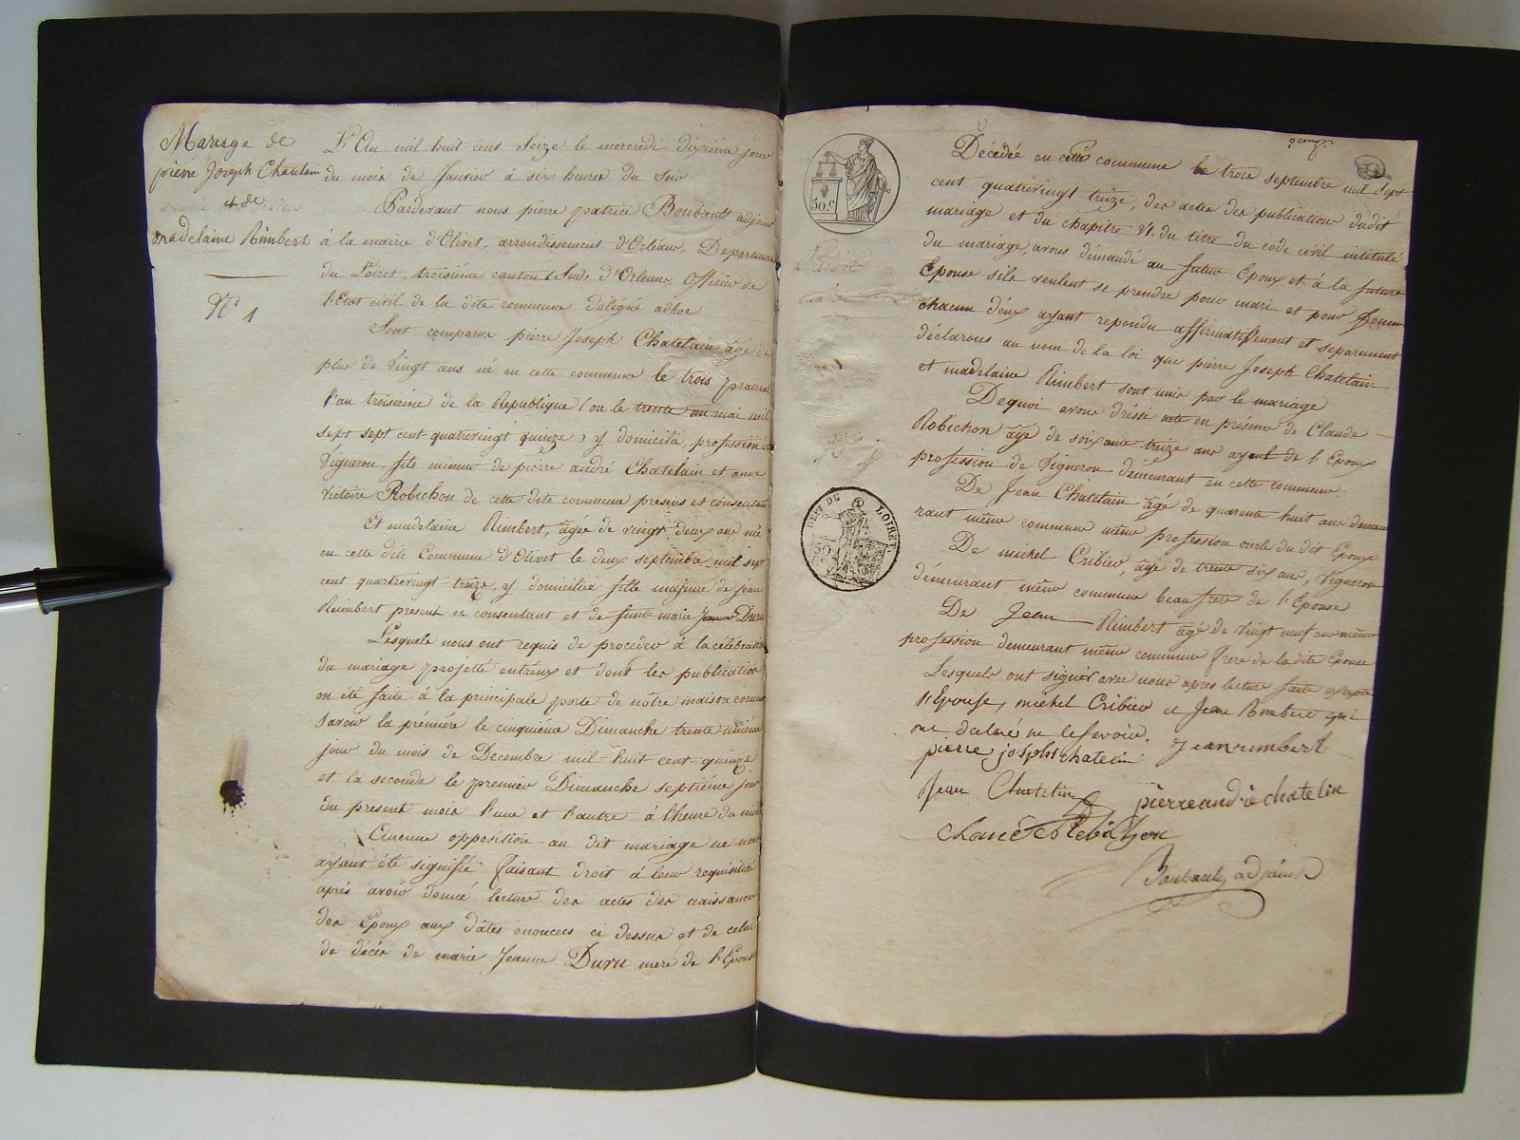 Mariage de
pierre Joseph Chatelain
& de
Madelaine Rimbert
N° 1
L'An mil huit cens Seize le mercredi dixieme jour
du mois de Janvier à six heures du Soir
Pardevant nous pierre patrice Boubault adjoint
à la mairie d'Olivet, arrondissement d'Orleans, Departement
du Loiret, troisiéme canton Sud d'Orleans Officier de
l'Etat civil de la dite commune délégué adhoc
Sont comparus pierre Joseph Chatelain agé de
plus de Vingt ans né en cette commune le trois prairial
l'an troisieme de la Republique (ou le trente un mai mil
sept sept cent quatrevingt quinze) y domicilié, profession de
Vigneron, fils mineur de pierre andré Chatelain et anne
victoire Robichon de cette dite commune présens et consentans
Et madelaine Rimbert, agée de vingt deux ans née
en cette dite Commune d'Olivet le deux septembre mil sept
cent quatrevingt treize, y domiciliée fille majeure de Jean
Rimbert present et consentant et de feue marie Jeanne Duru
Lesquels nous ont requis de proceder à la célébration
du mariage projetté entreux et dont les publications
on été faite à la principale porte de nôtre maison commune
Savoir la prémiére le cinquiéme Dimanche trente uniéme
jour du mois de Decembre mil huit cent quinze
et la seconde le premier Dimanche septiéme jour
du present mois l'une et l'autre à l'heure de midi
Aucune opposition au dit mariage ne nous
ayant été signifiée faisant droit à leur requisition
après avoir donné lecture des actes des naissances
des Epoux aux dates enoncees ci dessus et de celui
de décès de marie Jeanne Duru mere de l'Epouse
30.c
Décédée en cette commune le trois septembre mil sept
cent quatrevingt treize, des actes des publications dudit
mariage et du chapitre VI du titre du code civil intitulé
du mariage, avons démandé au futur Epoux et à la future
Epouse sils veulent se prendre pour mari et pour femme
chacun d'eux ayant repondu affirmativement et separement
déclarons au nom de la loi que pierre Joseph Chatelain
et madelaine Rimbert sont unis par le mariage
Dequoi avons dréssé acte en présence de Claude
Robichon agé de soixante treize ans ayeul de l'Epoux
profession de Vigneron demeurant en cette commune.
De Jean Chatelain agé de quarante huit ans demeu
rant même commune même profession oncle du dit Epoux
De michel Cribier, agé de trente six ans, Vigneron
démeurant même commune beaufrere de l'Epouse
De Jean Rimbert agé de vingt neuf ans même
profession demeurant même commune frere de la dite Epouse
Lesquels ont signés avec nous apres lecture faite excepté
l'Epouse, michel Cribier et Jean Rimbert qui
ont declaré ne le savoir.
DEPT DU LOIRET
pierre joseph chatelin Jean rimbert
Jean Chatelin pierre andrè chatelin
Boubault adjoint